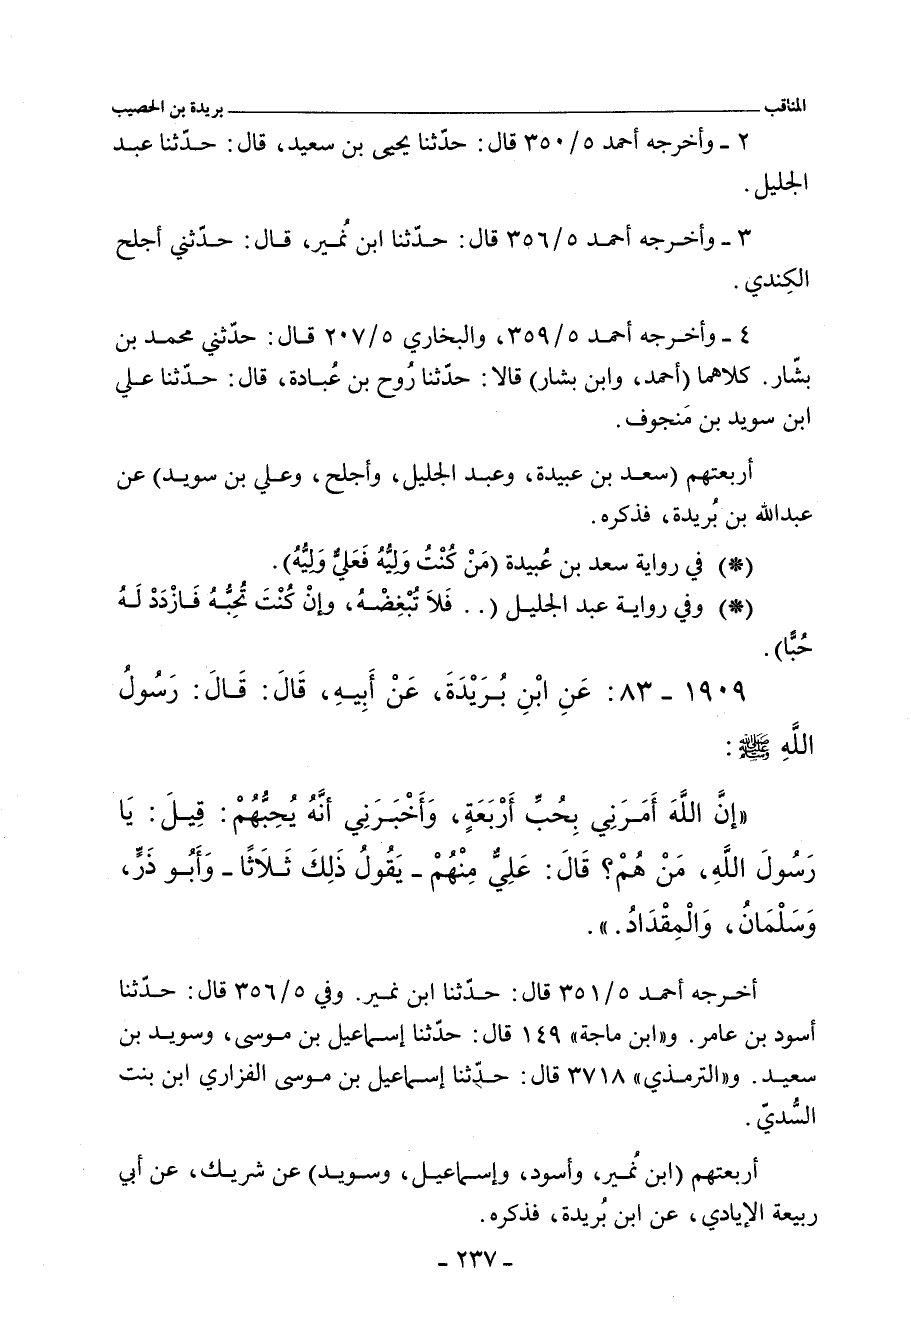 المناقب بريدة بن الحصيب
٢ ـ وأخرجه أحمد ٥/ ٣٥٠ قال: حدّثنا يحيى بن سعيد، قال: حدّثنا عبد
الجليل.
٣ ـ وأخرجه أحمد ٥/ ٣٥٦ قال: حدّثنا ابن نُمير، قال: حدّثني أجلح
الكِندي.
٤ ـ وأخرجه أحمد ٥/ ٣٥٩، والبخاري ٥/ ٢٠٧ قال: حدّثني محمد بن
بشّار. كلاهما (أحمد، وابن بشار) قالا: حدّثنا رُوح بن عُبادة، قال: حدّثنا علي
ابن سويد بن مَنجوف.
أربعتهم (سعد بن عبيدة، وعبد الجليل، وأجلح، وعلي بن سويد) عن
عبدالله بن بُريدة، فذكره.
(*) في رواية سعد بن عُبيدة (مَنْ كُنْتُ وَلِيُّهُ فَعَلِيٌّ وَلِيُّهُ).
(*) وفي رواية عبد الجليل (.. فَلاَ تُبْغِضْهُ، وإنْ كُنْتَ تُحِبُّهُ فَازْدَدْ لَهُ
حُبًّا).
١٩٠٩ ـ ٨٣: عَنِ ابْنِ بُرَيْدَةَ، عَنْ أَبِيهِ، قَالَ: قَالَ: رَسُولُ
اللَّهِ ﷺ:
«إنَّ اللَّهَ أَمَرَنِي بِحُبِّ أَرْبَعَةٍ، وَأَخْبَرَنِي أَنَّهُ يُحِبُّهُمْ: قِيلَ: يَا
رَسُولَ اللَّهِ، مَنْ هُمْ؟ قَالَ: عَلِيٌّ مِنْهُمْ ـ يَقُولُ ذَلِكَ ثَلَاثًا ـ وَأَبُو ذَرٍّ،
وَسَلْمَانُ، وَالْمِقْدَادُ.».
أخرجه أحمد ٥/ ٣٥١ قال: حدّثنا ابن نمير. وفي ٥/ ٣٥٦ قال: حدّثنا
أسود بن عامر. و«ابن ماجة» ١٤٩ قال: حدّثنا إسماعيل بن موسى، وسويد بن
سعيد. و«الترمذي» ٣٧١٨ قال: حدّثنا إسماعيل بن موسى الفزاري ابن بنت
السُّديّ.
أربعتهم (ابن نُمير، وأسود، وإسماعيل، وسويد) عن شريك، عن أبي
ربيعة الإيادي، عن ابن بُريدة، فذكره.
ـ ٢٣٧ ـ